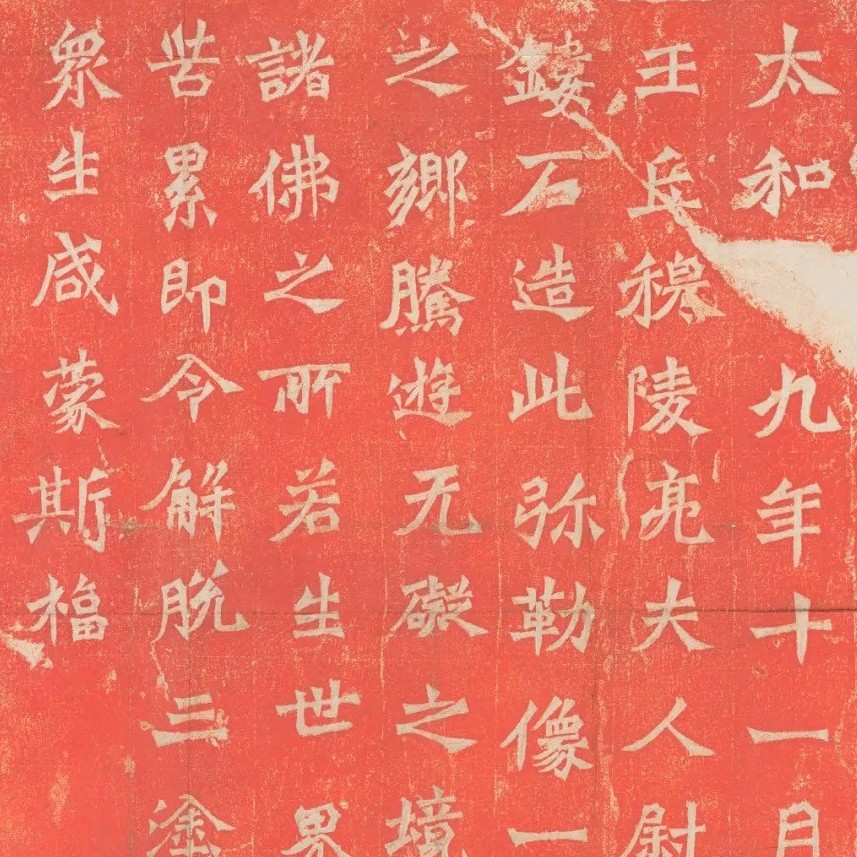 太和九年十一月
王丘穆陵亮夫人尉
鏤石造此弥勒像一
之鄉騰遊无礙之境
諸佛之所若生世界
苦累即令解脱三塗
眾生咸蒙斯福